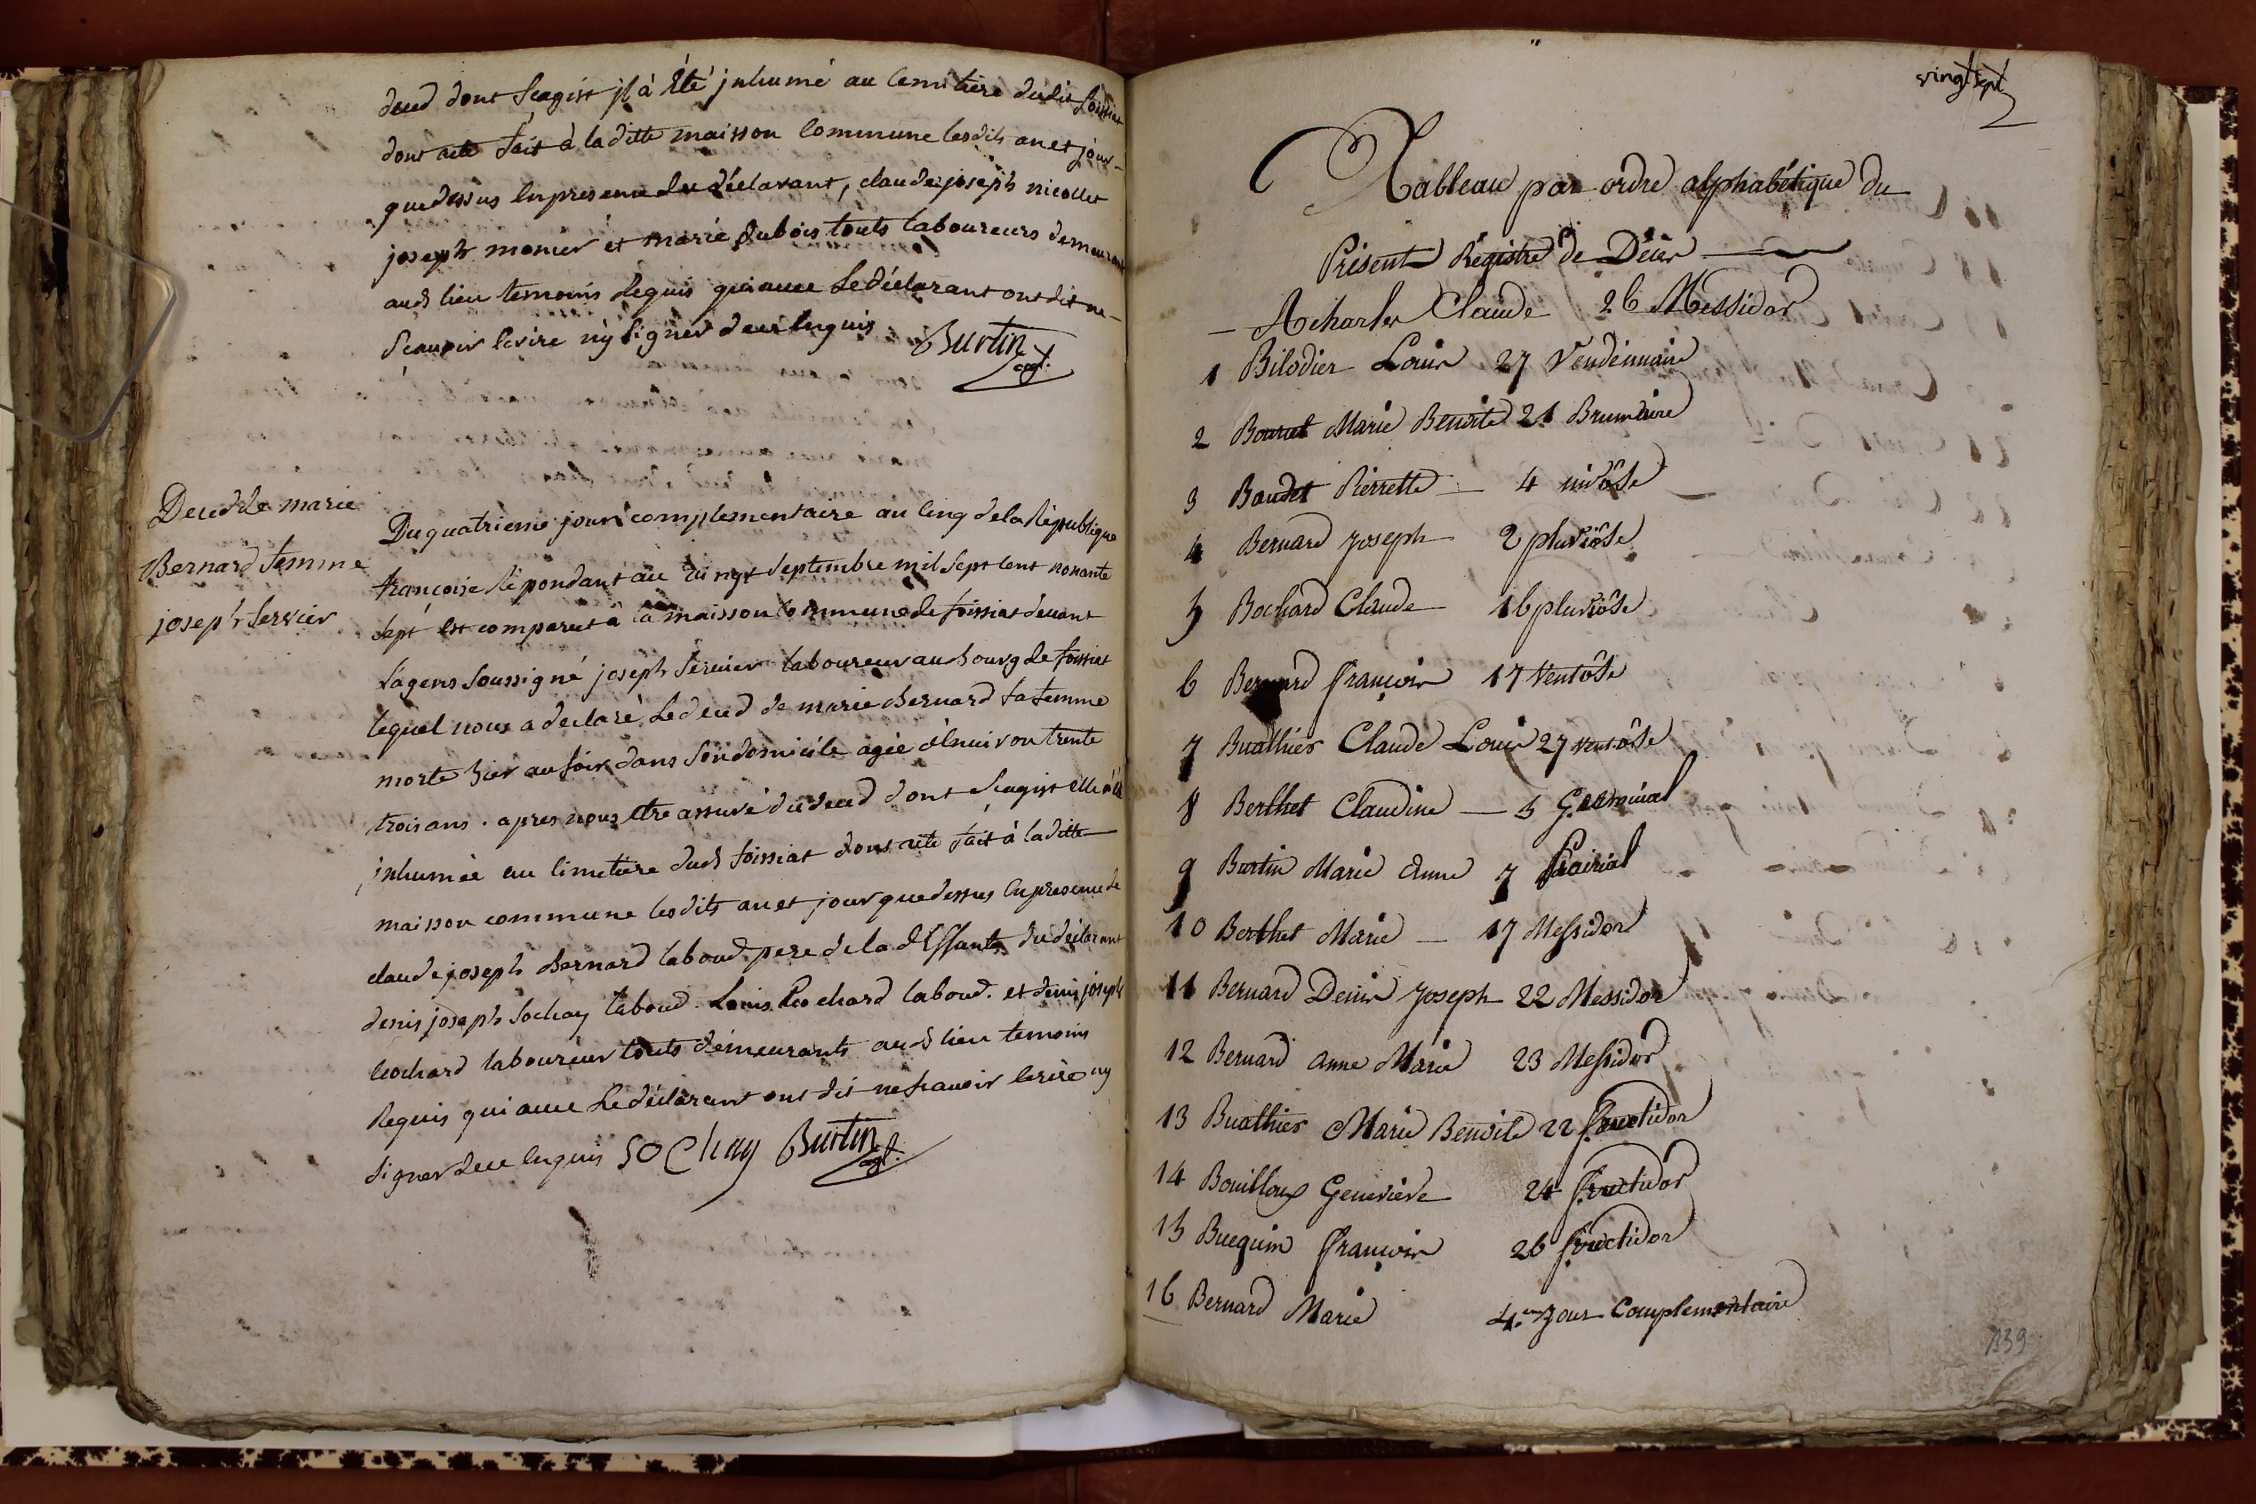 deced dont Seagist jl à Eté jnhumé au Cemitiere dudit foissiat
dont acte fait à la ditte maisson Commune lesdits an et jour
que dessus En presence du déclarant, claude joseph nicollet
joseph monier et marie dubois touts laboureurs demeurant
aud lieu temoins Requis qui avec Le déclarant ont dit ne
Scavoir Ecrire ny Signer de ce Enquis
Burtin agt.
Deced de marie
Bernard femme
joseph Servier
Du quatrieme jour complementaire an Cinq de la République
françoise Répondant au vingt Septembre mil Sept Cent nonante
Sept Est comparut à la maisson Commune de foissiat devant
L'agens Soussigné joseph Servier laboureur au bourg de foissiat
lequel nous a declaré Le deced de marie Bernard Sa femme
morte hier au Soir dans Son domicile agée d'Environ trente
trois ans . apres nous Etre assuré du deced dont Seagist Elle à été
jnhumée au Cimetiere dud foissiat dont acte fait à la ditte
maisson commune lesdits an et jour que dessus En presence de
claude joseph Bernard laboud pere de la deffunte du déclarant
denis joseph Sochay laboud. Louis Bochard laboud. et denis joseph
bochard laboureur touts demeurants aud lieu temoins
Requis qui avec Le déclarant ont dit ne Scavoir Ecrire ny
Signer de ce Enquis SOChay Burtin agt.
vingt sept
Tableau par ordre alphabétique du
Présent Régistre de Décès
Acharles Claude 26 Messidor
1 Bilodier Louis 27 Vendémiaire
2 Bourcet Marie Benoite 21 Brumaire
3 Baudet Pierrette 4 nivôse
4 Bernard Joseph 2 pluviôse
5 Bochard Claude 16 pluviôse
6 Bernard françois 17 Ventôse
7 Buathier Claude Louis 27 ventôse
8 Berthet Claudine 5 Germinal
9 Burtin Marie Anne 7 Prairial
10 Berthet Marie 17 Messidor
11 Bernard Denis Joseph 22 Messidor
12 Bernard anne Marie 23 Messidor
13 Buathier Marie Benoite 22 fructidor
14 Bouilloux Genevieve 24 fructidor
15 Buequin françois 26 fructidor
16 Bernard Marie 4.em Jour Complementaire
139